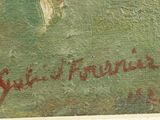 Gabriel Fournier